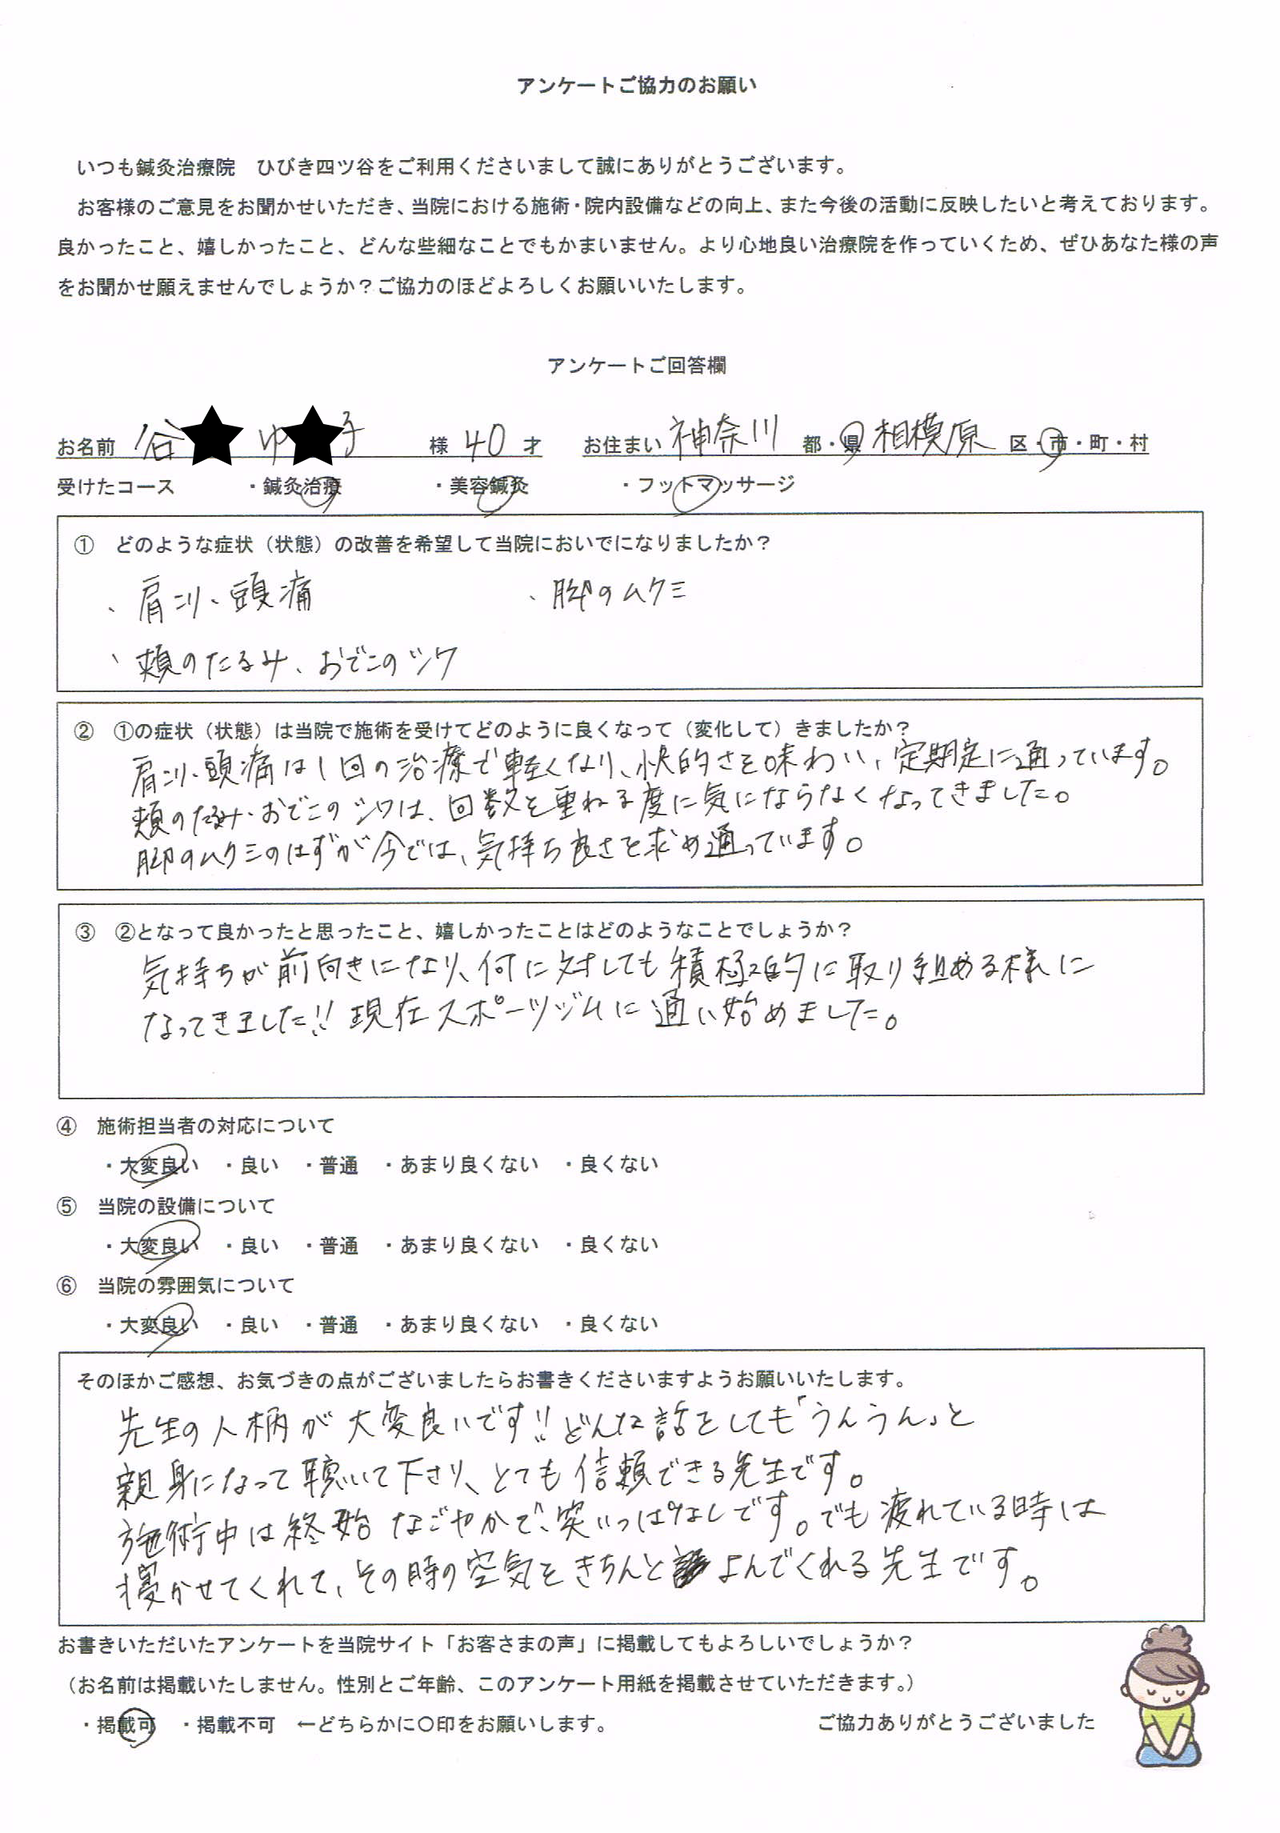 アンケートご協力のお願い
いつも鍼灸治療院　ひびき四ツ谷をご利用くださいまして誠にありがとうございます。
お客様のご意見をお聞かせいただき、当院における施術・院内設備などの向上、また今後の活動に反映したいと考えております。
良かったこと、嬉しかったこと、どんな些細なことでもかまいません。より心地良い治療院を作っていくため、ぜひあなた様の声
をお聞かせ願えませんでしょうか？ご協力のほどよろしくお願いいたします。
アンケートご回答欄
お名前 谷★ ゆ★子 様 40 才 お住まい 神奈川 都・県 相模原 区・市・町・村
受けたコース ・鍼灸治療 ・美容鍼灸 ・フットマッサージ
① どのような症状（状態）の改善を希望して当院においでになりましたか？
、肩コリ、頭痛 、脚のムクミ
、頬のたるみ、おでこのシワ
② ①の症状（状態）は当院で施術を受けてどのように良くなって（変化して）きましたか？
肩コリ、頭痛は1回の治療で軽くなり、快的さを味わい、定期定に通っています。
頬のたるみ・おでこのシワは、回数を重ねる度に気にならなくなってきました。
脚のムクミのはずが今では、気持ち良さを求め通っています。
③ ②となって良かったと思ったこと、嬉しかったことはどのようなことでしょうか？
気持ちが前向きになり、何に対しても積極的に取り組める様に
なってきました!! 現在スポーツジムに通い始めました。
④ 施術担当者の対応について
・大変良い ・良い ・普通 ・あまり良くない ・良くない
⑤ 当院の設備について
・大変良い ・良い ・普通 ・あまり良くない ・良くない
⑥ 当院の雰囲気について
・大変良い ・良い ・普通 ・あまり良くない ・良くない
そのほかご感想、お気づきの点がございましたらお書きくださいますようお願いいたします。
先生の人柄が大変良いです!! どんな話をしても「うんうん」と
親身になって聴いて下さり、とても信頼できる先生です。
施術中は終始なごやかで、笑いっぱなしです。でも疲れている時は
寝かせてくれて、その時の空気をきちんとよんでくれる先生です。
お書きいただいたアンケートを当院サイト「お客さまの声」に掲載してもよろしいでしょうか？
（お名前は掲載いたしません。性別とご年齢、このアンケート用紙を掲載させていただきます。）
・掲載可 ・掲載不可 ←どちらかに〇印をお願いします。 ご協力ありがとうございました